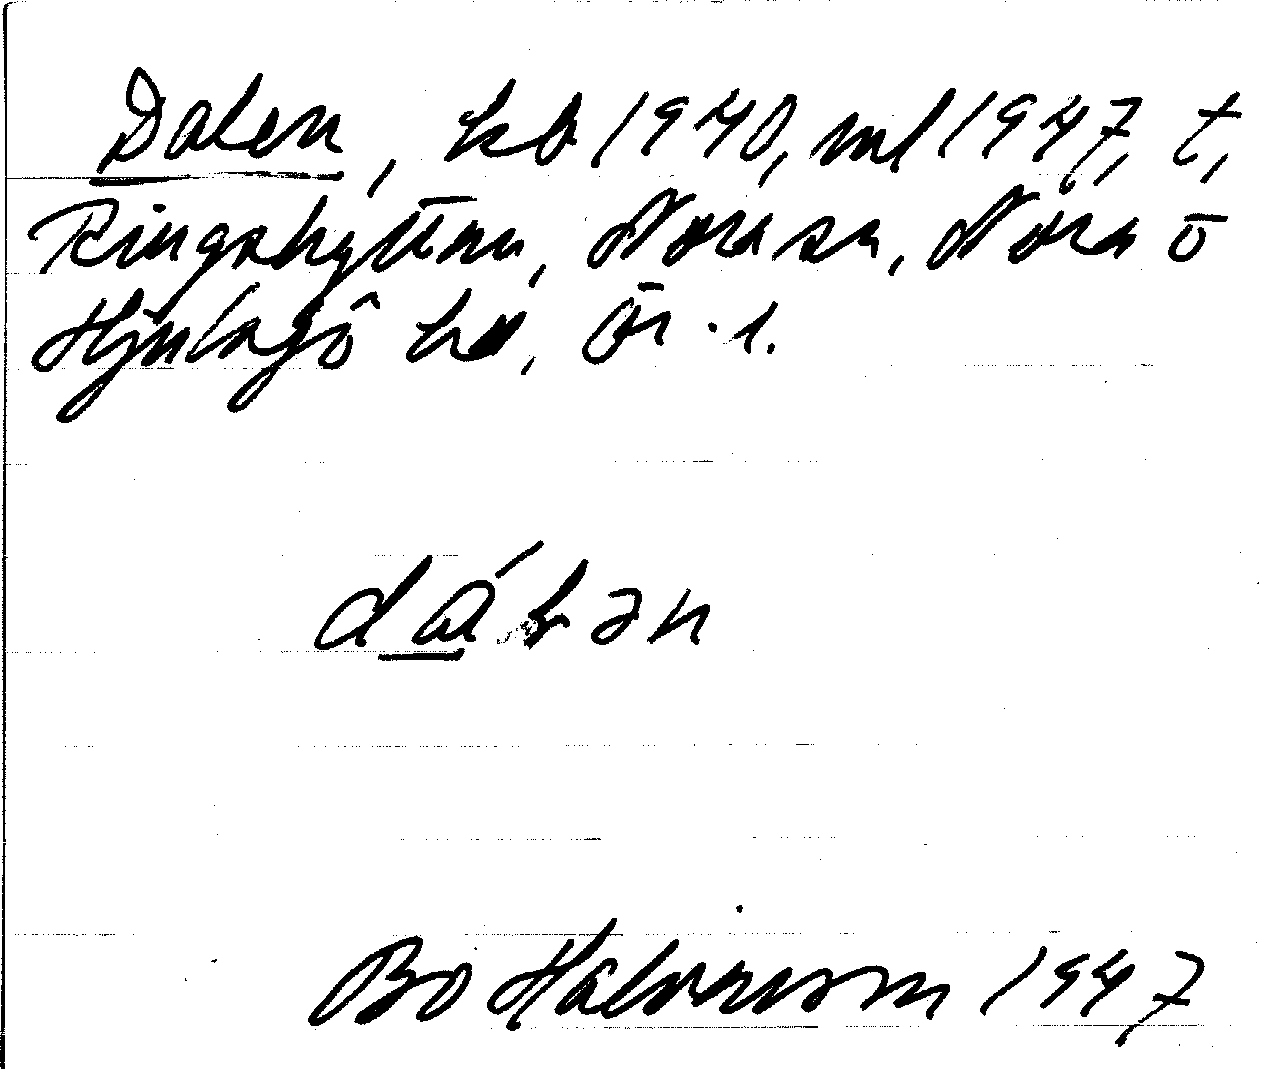 Dalen, kb 1940, ml 1947, t,
Ringshyttan, Nora sn, Nora o
Hjulsjö hd, Ör. l.
dá̱lən
Bo Halvarsson 1947